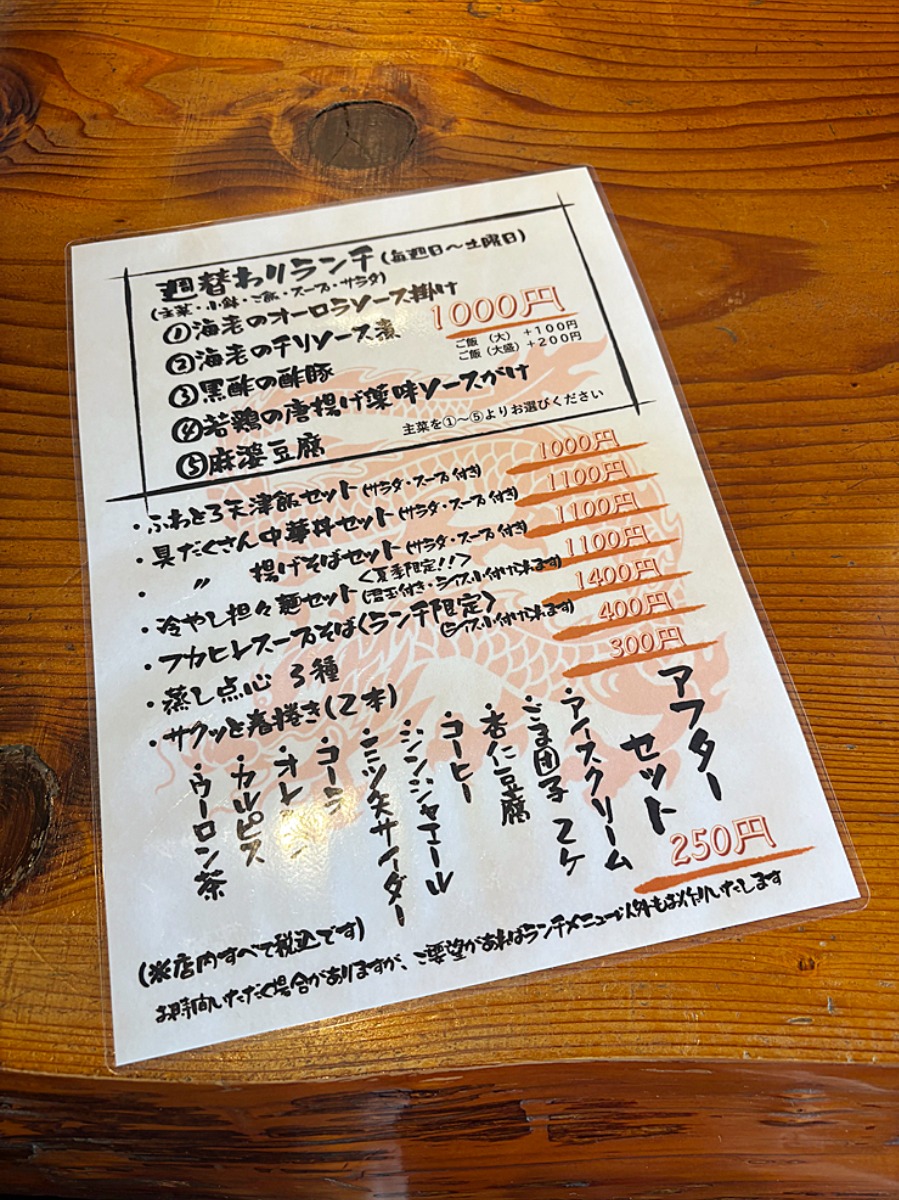 週替わりランチ(毎週日〜土曜日)
(主菜・小鉢・ご飯・スープ・サラダ)
①海老のオーロラソース掛け
1000円
②海老のチリソース煮
ご飯（大）+100円
ご飯（大盛）+200円
③黒酢の酢豚
④若鶏の唐揚げ薬味ソースがけ
⑤麻婆豆腐
主菜を①〜⑤よりお選びください
・ふわとろ天津飯セット(サラダ・スープ付き) 1000円
・具だくさん中華丼セット(サラダ・スープ付き) 1100円
・〃 揚げそばセット(サラダ・スープ付き) 1100円
<夏季限定!!>
・冷やし担々麺セット(温玉付き・ライス小付け出来ます) 1100円
・フカヒレスープそば<ランチ限定> 1400円
(ライス小付け出来ます)
・蒸し点心 3種 400円
・サクッと春捲き(2本) 300円
アフター
セット
250円
・アイスクリーム
・ごま団子 2ケ
・杏仁豆腐
・コーヒー
・ジンジャエール
・三ツ矢サイダー
・コーラ
・オレ
・カルピス
・ウーロン茶
(※店内すべて税込です)
お時間いただく場合がありますが、ご要望があればランチメニュー以外もお作りいたします